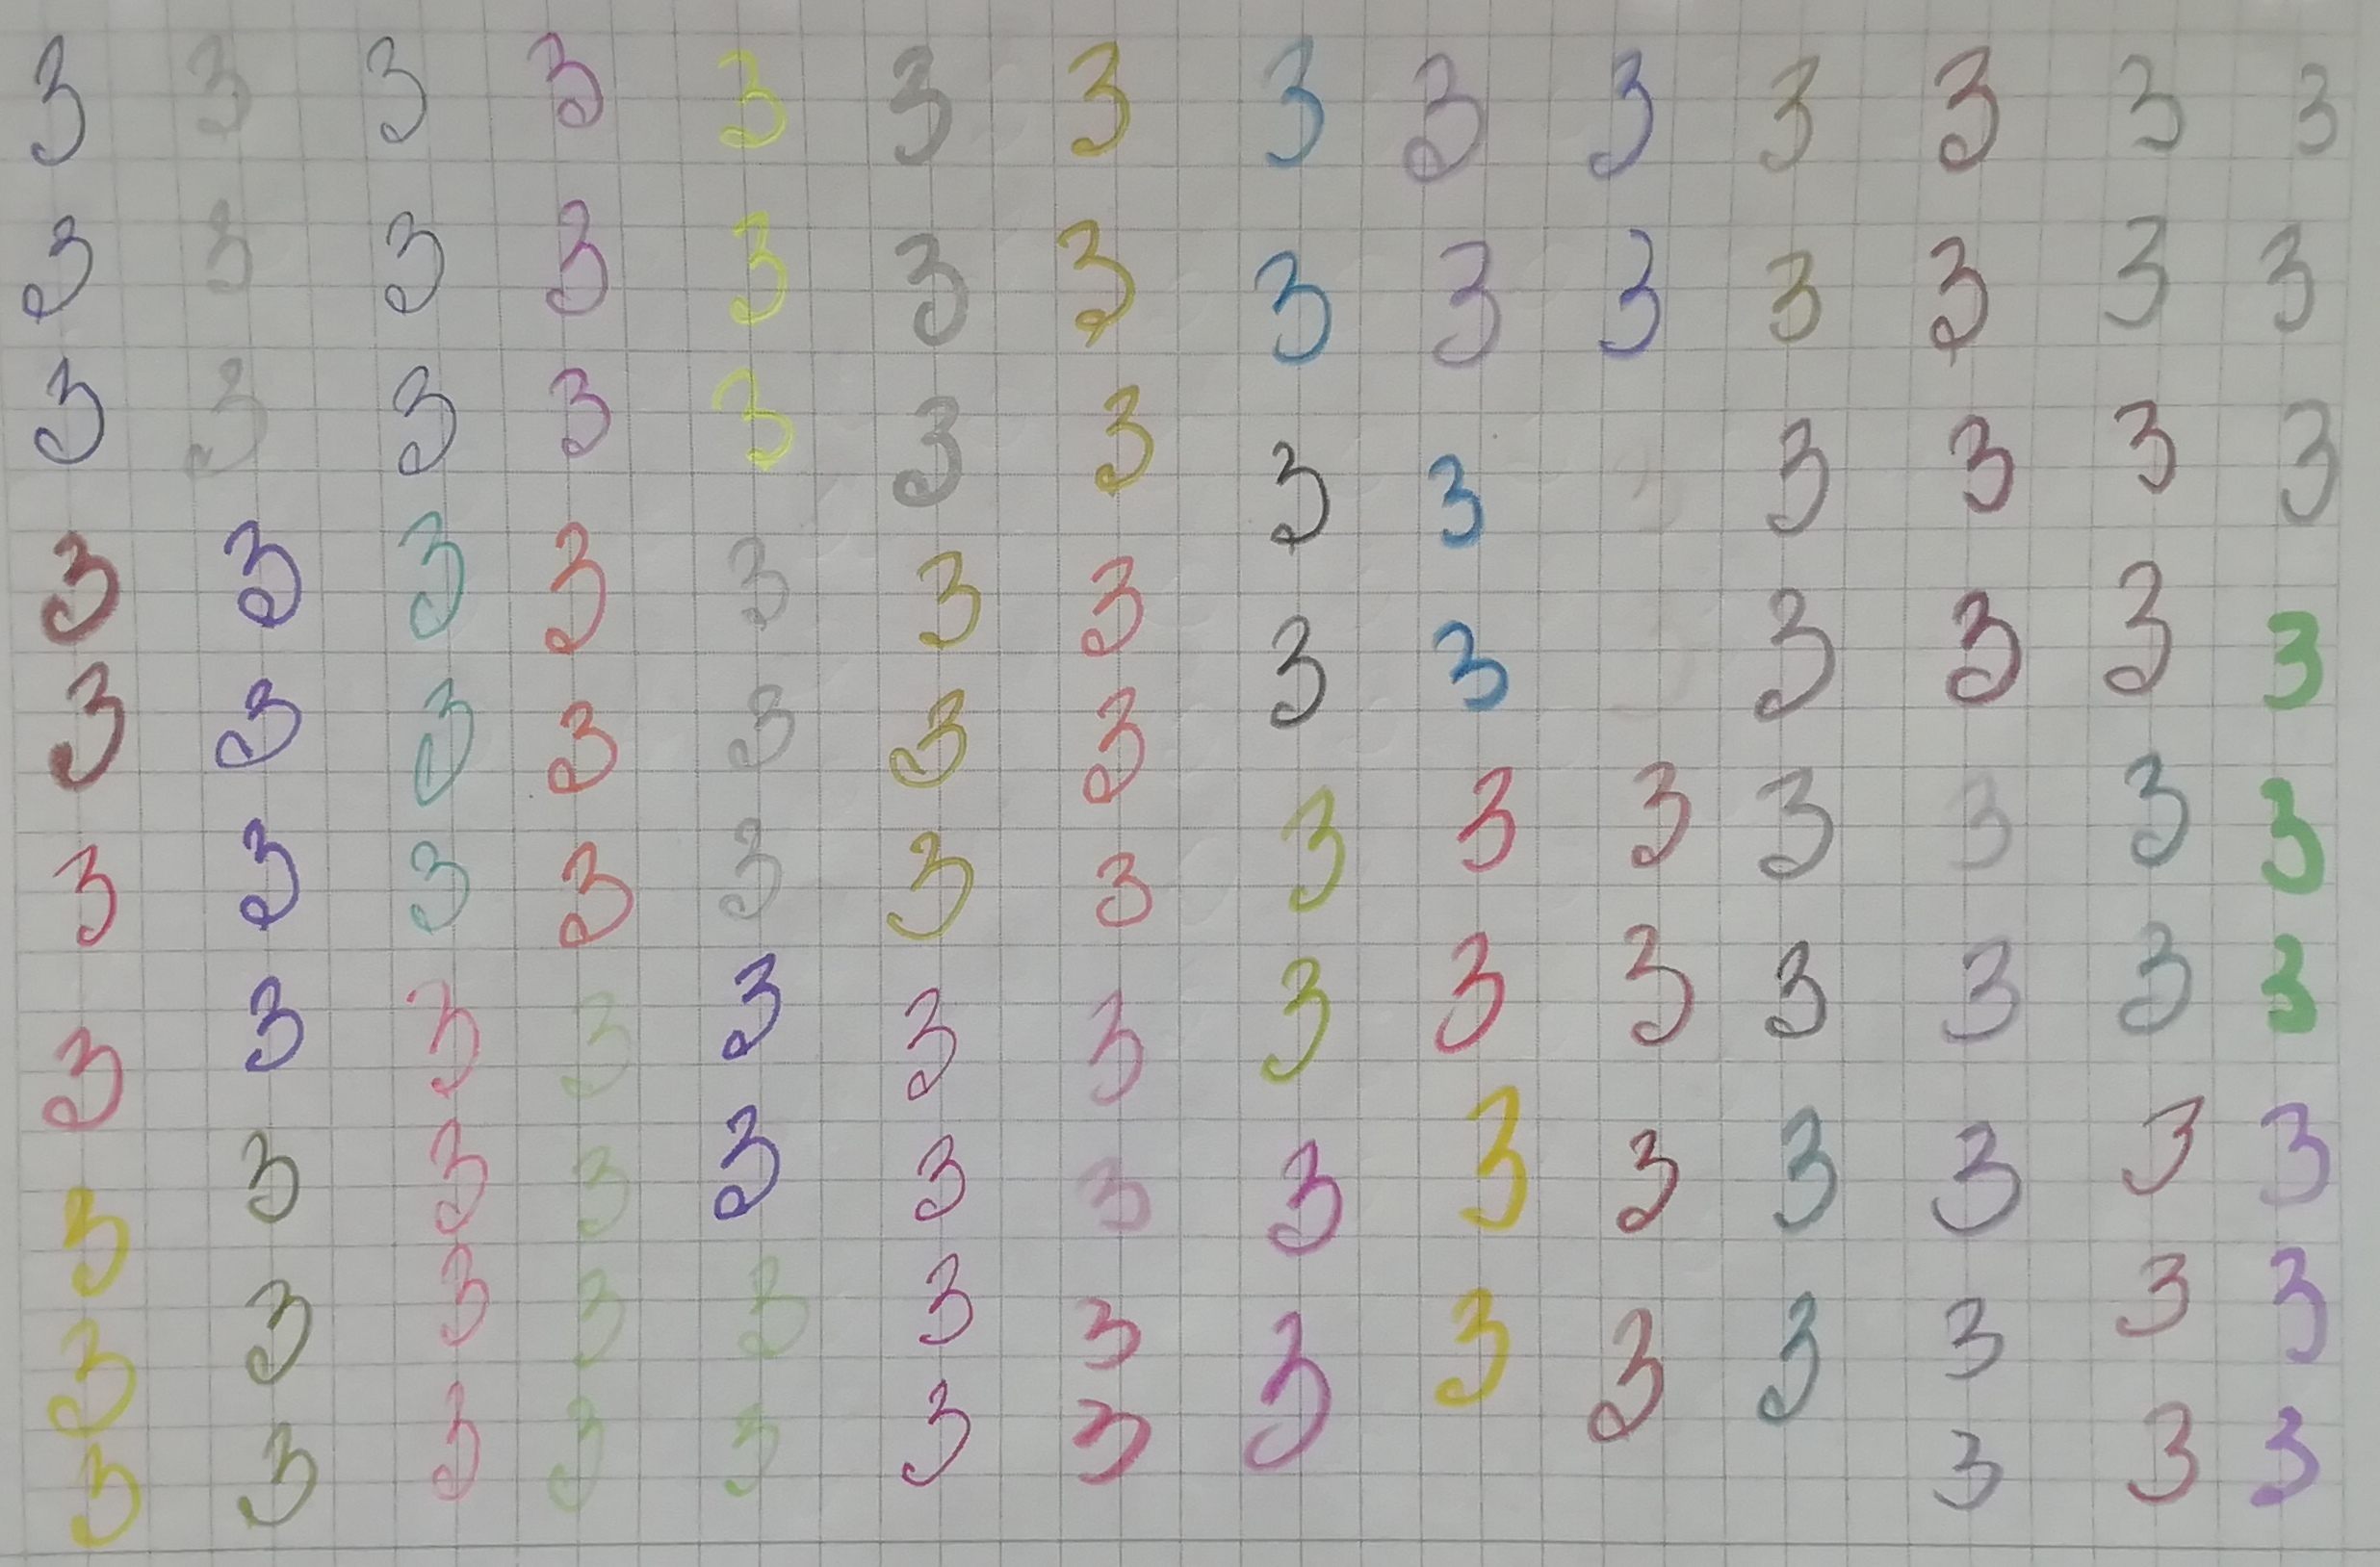 3 3 3 3 3 3 3 3 3 3 3 3 3 3
3 3 3 3 3 3 3 3 3 3 3 3 3 3
3 3 3 3 3 3 3 3 3 3 3 3 3
3 3 3 3 3 3 3 3 3 3 3 3 3
3 3 3 3 3 3 3 3 3 3 3 3 3 3
3 3 3 3 3 3 3 3 3 3 3 3 3 3
3 3 3 3 3 3 3 3 3 3 3 3 3 3
3 3 3 3 3 3 3 3 3 3 3 3 3 3
3 3 3 3 3 3 3 3 3 3
3 3 3 3 3 3 3